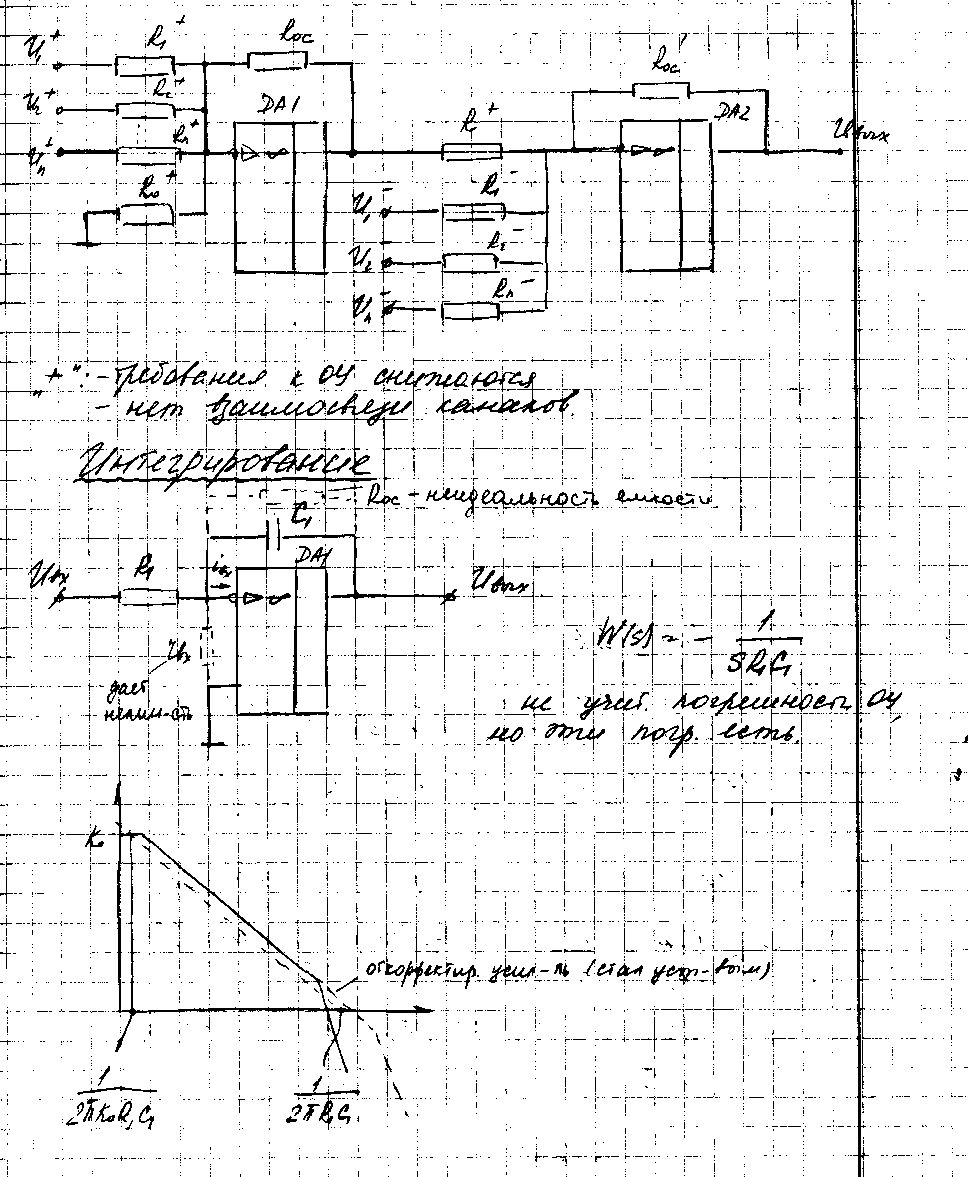 U₁⁺ R₁⁺ Rос
U₂⁺ R₂⁺ DA1
Uₙ⁺ Rₙ⁺
R₀⁺
R⁺ Rос' DA2 Uвых
U₁⁻ R₁⁻
U₂⁻ R₂⁻
Uₙ⁻ Rₙ⁻
„+": - требования к ОУ снижаются
- нет взаимосвязи каналов.
Интегрирование
Rос - неидеальность емкости
C₁
DA1
Uвх R₁ iвх Uвых
rвх
дает
нелин-сть
W(s) = - 1/(SR₁C₁)
не учит. погрешность ОУ,
но эти погр. есть.
K₀
откорректир. усил-ль (стал уст-вым)
1/(2πK₀R₁C₁) 1/(2πR₁C₁)